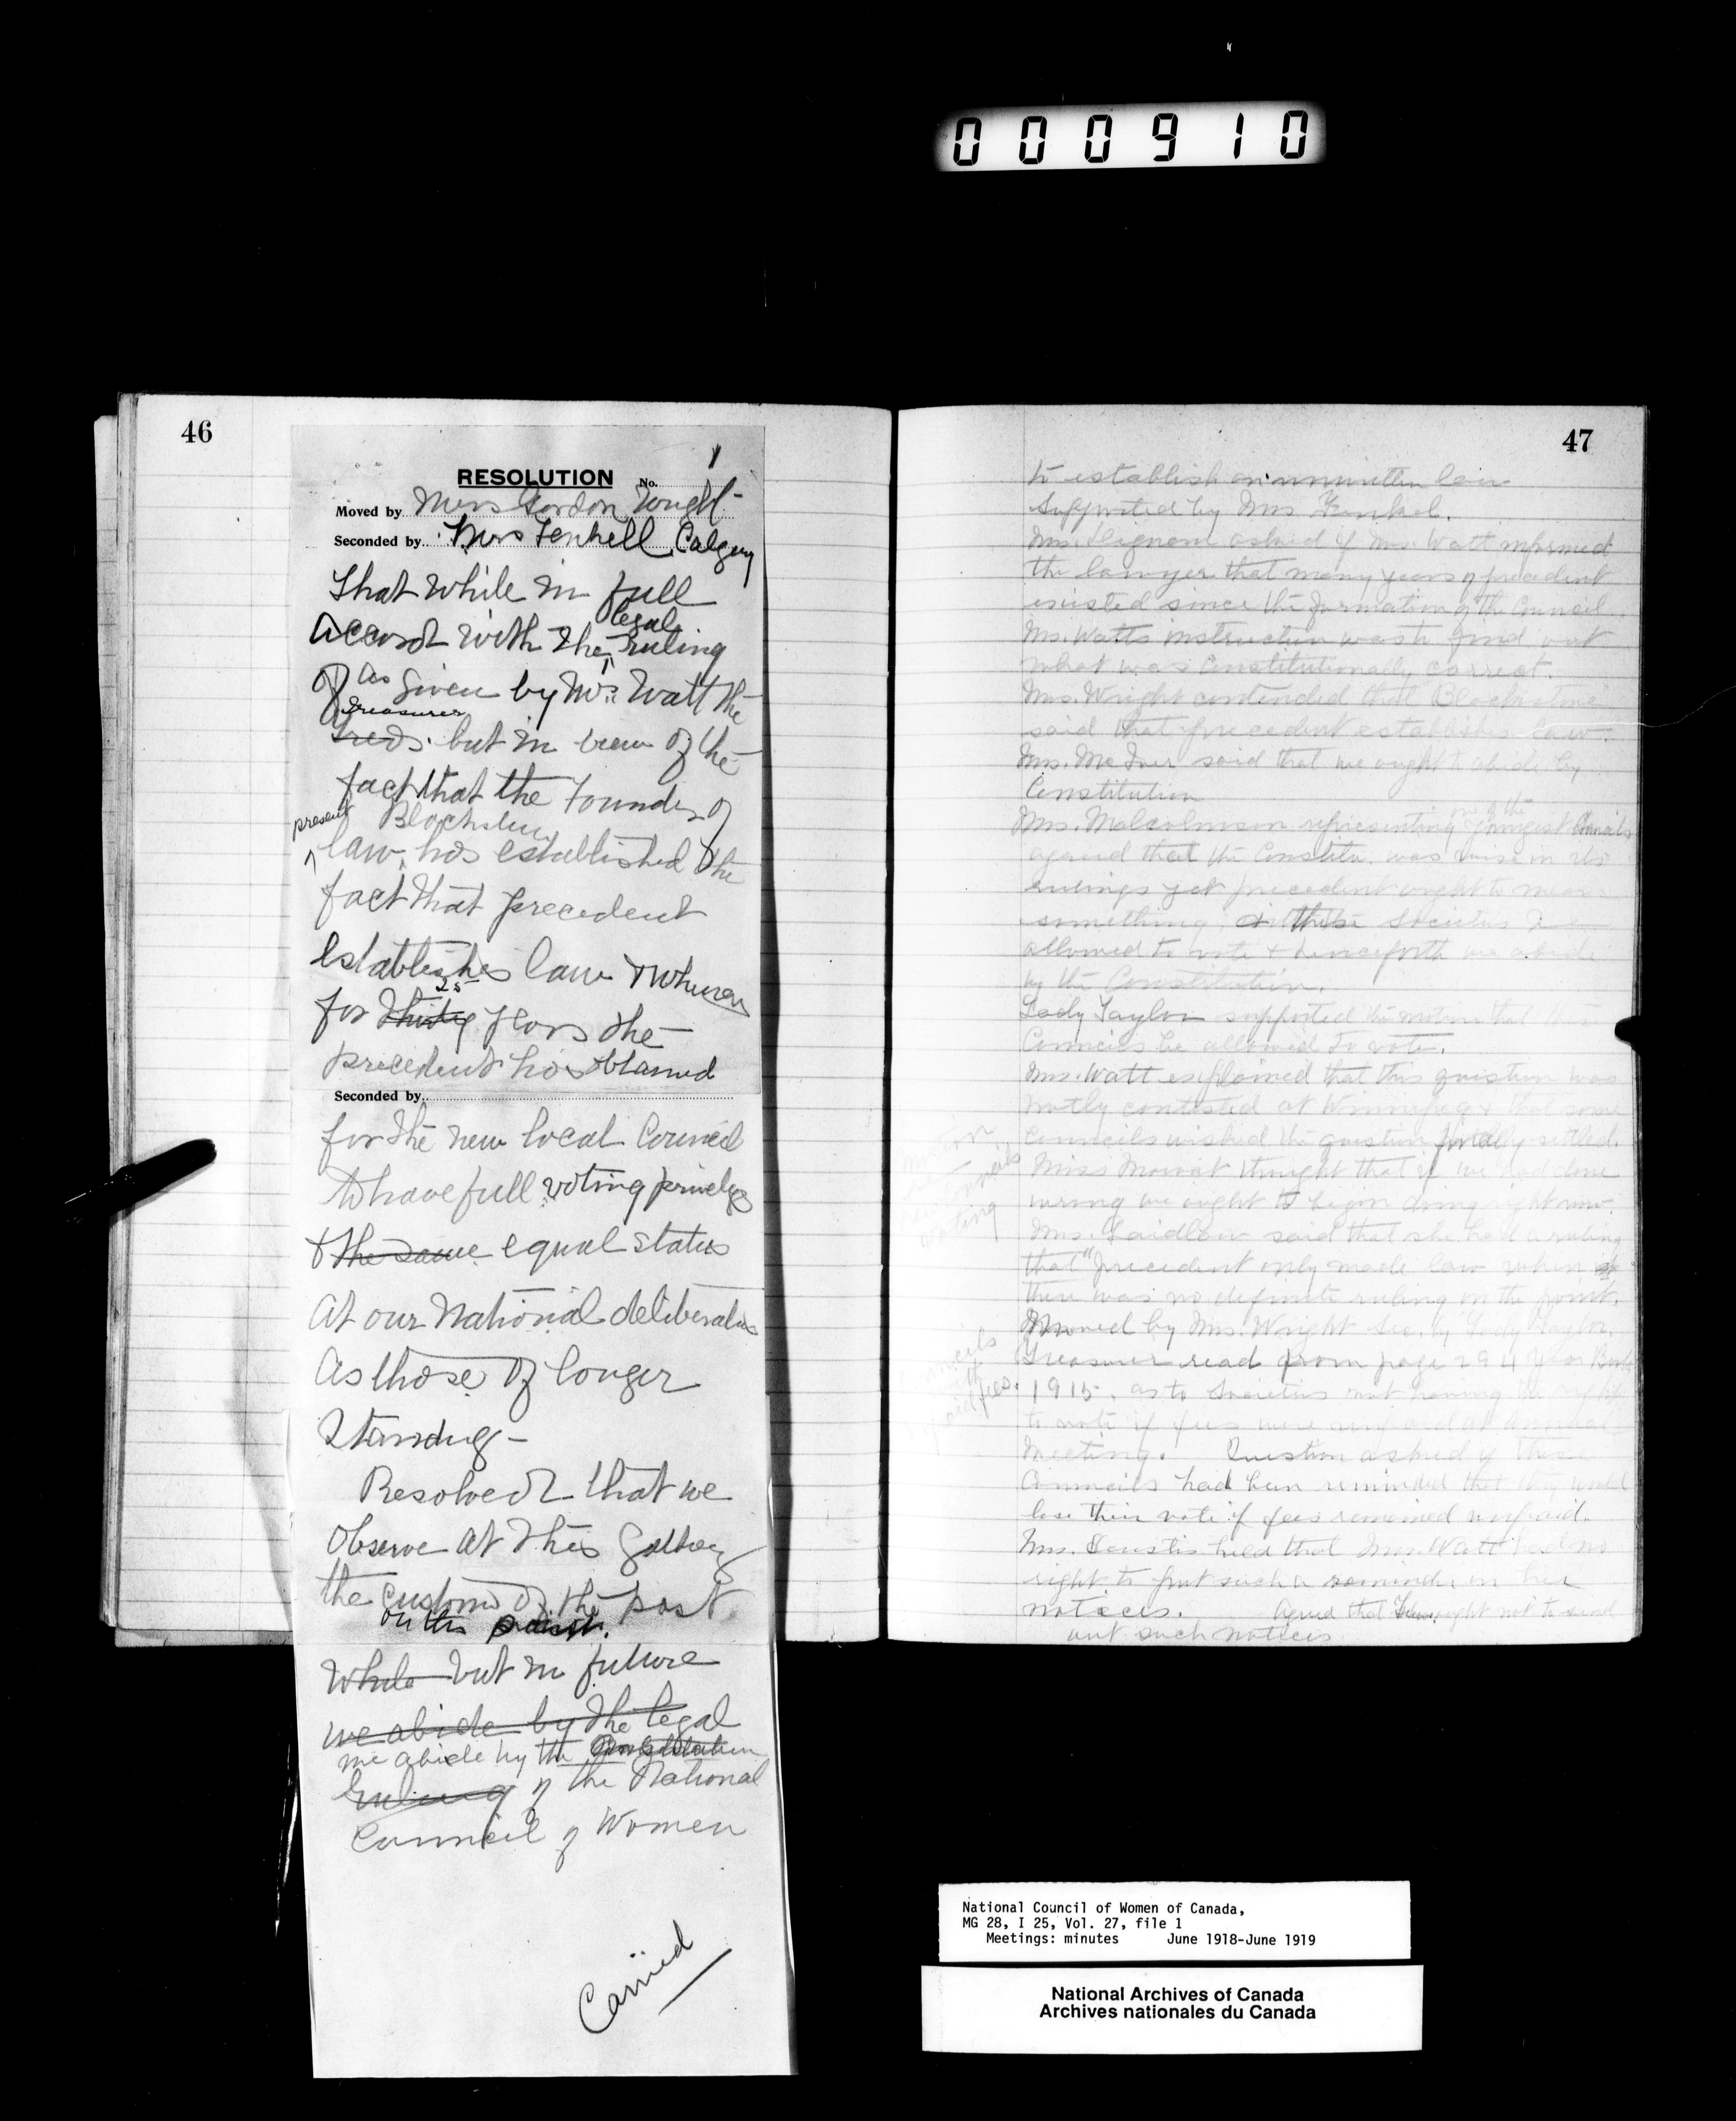 000910
46
RESOLUTION No. 1
Moved by Mrs Gordon Wright
Seconded by Mrs Fenkell, Calgary
That while in full
accord with the legal ruling
as given by Mrs. Watt the
Treasurer
but in view of the
fact that the Founder of
present Blackstone
law, has established the
fact that precedent
establishes law & whereas
for thirty 25 years the
precedent has obtained
Seconded by
for the new local Council
to have full voting priveleges
& the same equal status
at our National deliberations
as those of longer
standing -
Resolved that we
observe at this
the customs of the past
on this point.
While but in future
we abide by the legal
we abide by the Constitution
Ruling of the National
Council of Women
Carried
47
to establish an unwritten law
Supported by Mrs
Mrs. asked if Mrs. Watt informed
the lawyer that many years of precedent
existed since the formation of the Council.
Mrs. Watts instruction was to find out
what was Constitutionally correct.
Mrs. Wright contended that Blackstone
said that precedent establishes law.
Mrs. said that we ought to abide by
Constitution
Mrs. Malcolmson representing one of the youngest Councils
agreed that the Constitu. was wise in its
rulings yet precedent ought to mean
something, these societies
allowed to vote & henceforth we abide
by the Constitution.
Lady Taylor supported the motion that
Councils be allowed to vote.
Mrs. Watt explained that this question was
hotly contested at Winnipeg & that some
Councils wished the question finally settled.
Miss Mowat thought that if we had done
wrong we ought to begin doing right now.
Mrs. Laidlaw said that she had a ruling
that "precedent only made law when
there was no definite ruling on the point.
Moved by Mrs. Wright Sec. by Lady Taylor.
Treasurer read from page 294 Year Book
1915, as to Societies not having the right
to vote if fees were unpaid at Annual
Meeting. Question asked if these
Councils had been reminded that they would
lose their vote if fees remained unpaid.
Mrs. held that Mrs. Watt had no
right to put such a reminder in her
notices. Agreed that ought not to send
out such notices
National Council of Women of Canada,
MG 28, I 25, Vol. 27, file 1
Meetings: minutes June 1918-June 1919
National Archives of Canada
Archives nationales du Canada